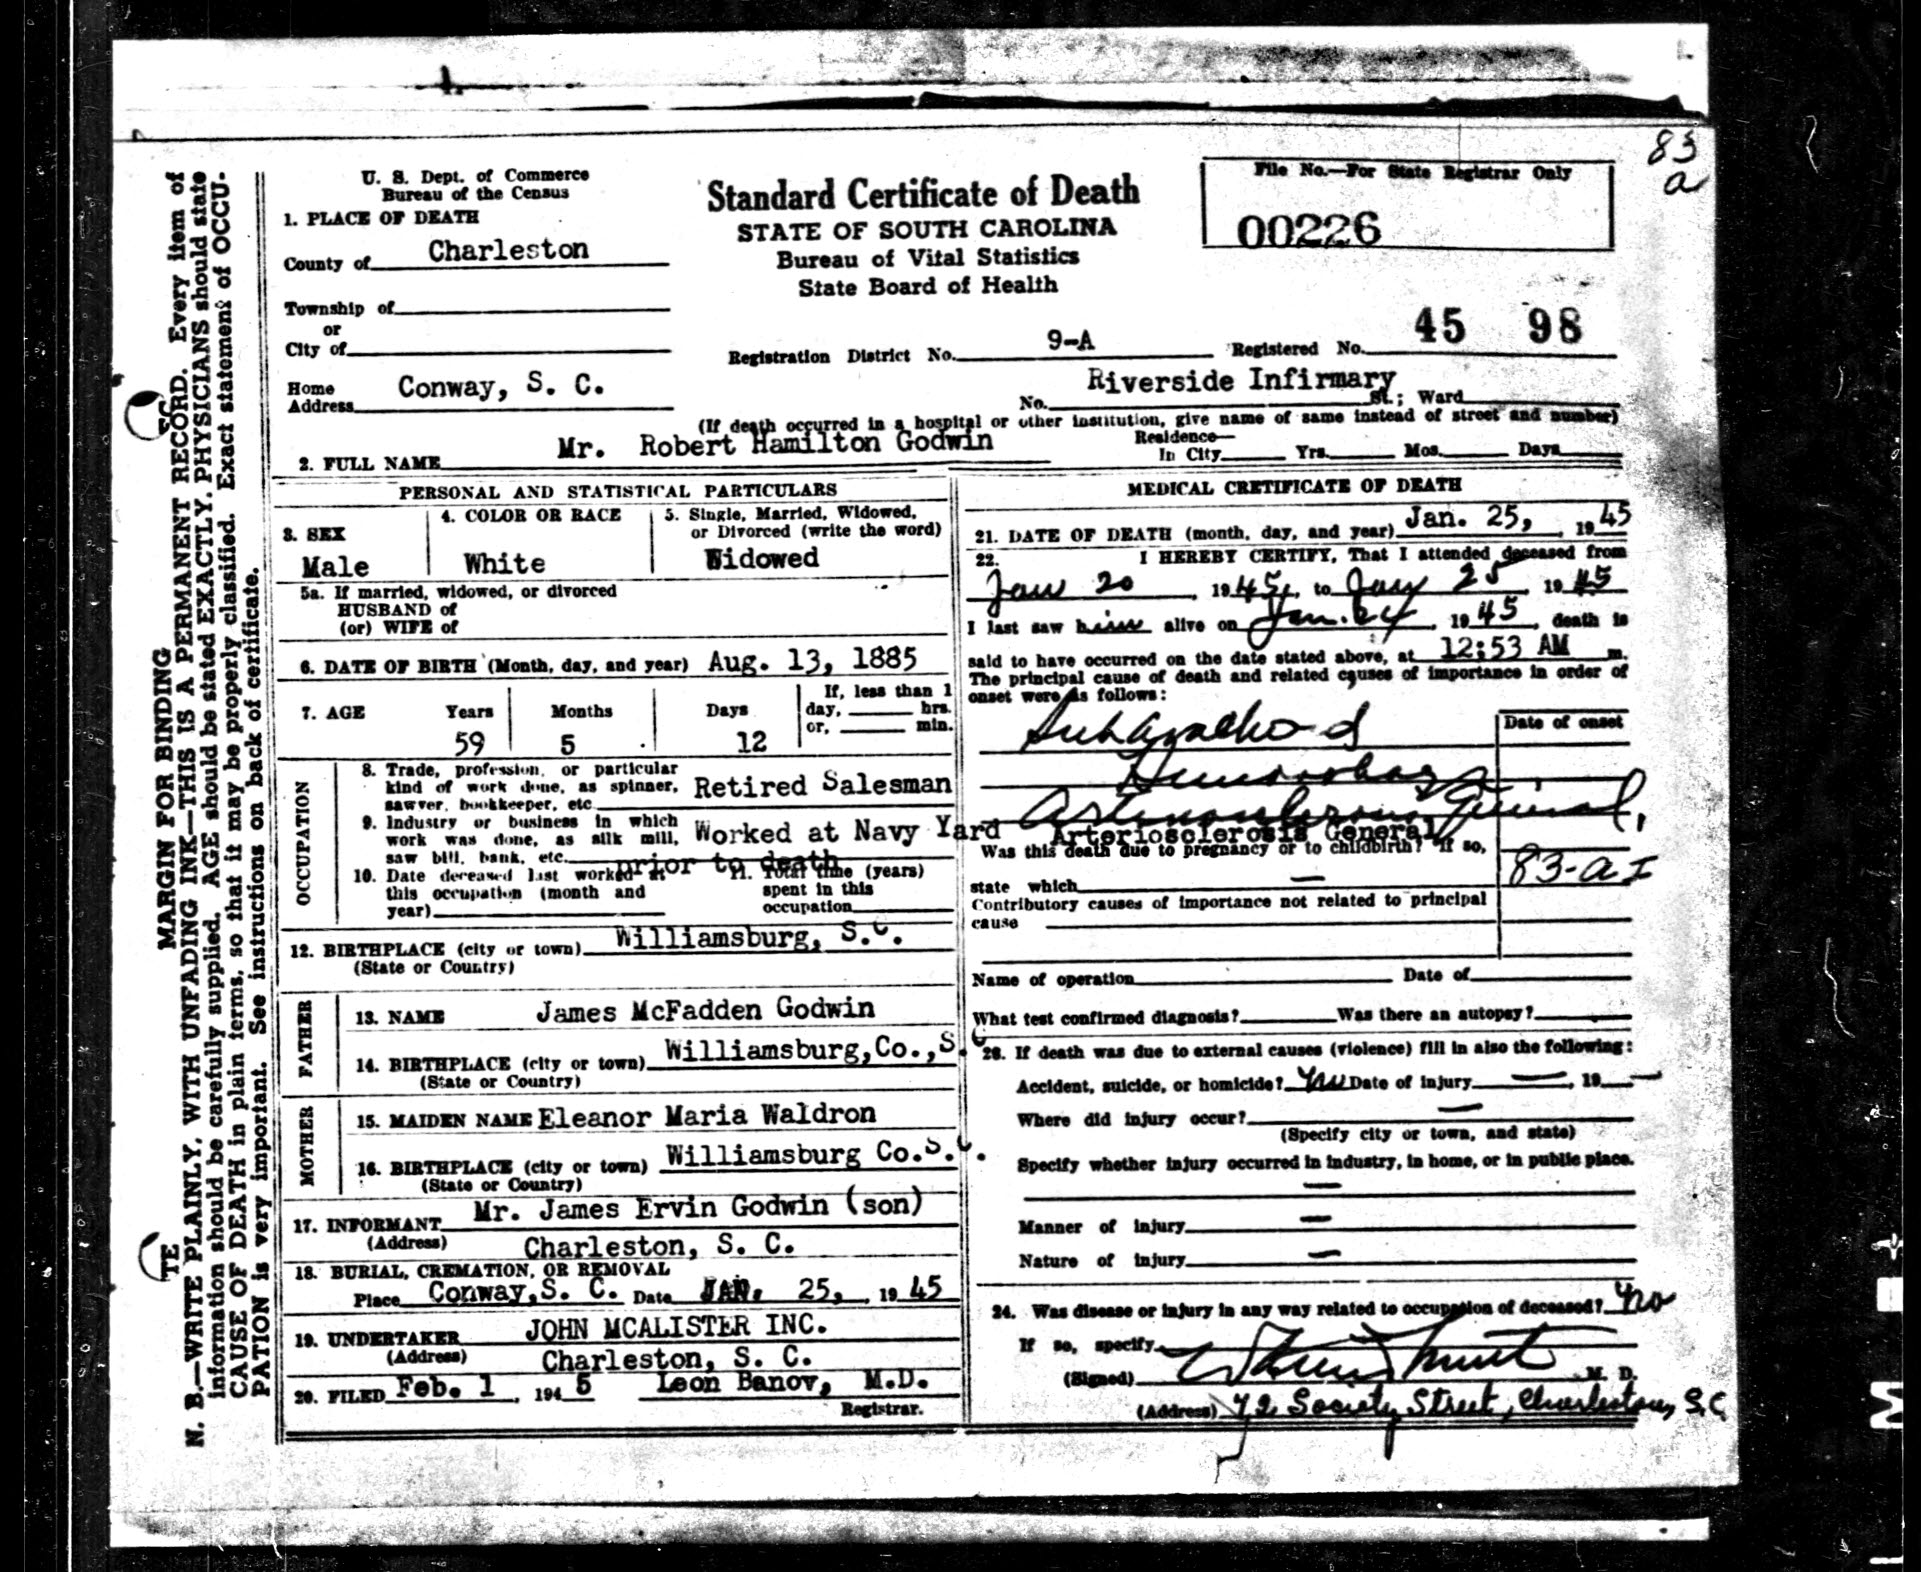 83
a
U. S. Dept. of Commerce
Bureau of the Census
Standard Certificate of Death
STATE OF SOUTH CAROLINA
Bureau of Vital Statistics
State Board of Health
File No.—For State Registrar Only
00226
1. PLACE OF DEATH
County of Charleston
Township of
or
City of
Registration District No. 9-A Registered No. 45 98
Home Address Conway, S. C.
No. Riverside Infirmary St.; Ward
(If death occurred in a hospital or other institution, give name of same instead of street and number)
2. FULL NAME Mr. Robert Hamilton Godwin
Residence—
In City Yrs. Mos. Days
PERSONAL AND STATISTICAL PARTICULARS
3. SEX
Male
4. COLOR OR RACE
White
5. Single, Married, Widowed,
or Divorced (write the word)
Widowed
5a. If married, widowed, or divorced
HUSBAND of
(or) WIFE of
6. DATE OF BIRTH (Month, day, and year) Aug. 13, 1885
7. AGE Years Months Days
59 5 12
If, less than 1
day, hrs.
or, min.
OCCUPATION
8. Trade, profession, or particular
kind of work done, as spinner,
sawyer, bookkeeper, etc. Retired Salesman
9. Industry or business in which
work was done, as silk mill,
saw bill, bank, etc. Worked at Navy Yard
prior to death
10. Date deceased last worked at
this occupation (month and
year)
11. Total time (years)
spent in this
occupation
12. BIRTHPLACE (city or town) Williamsburg, S.C.
(State or Country)
FATHER
13. NAME James McFadden Godwin
14. BIRTHPLACE (city or town) Williamsburg,Co.,S.C
(State or Country)
MOTHER
15. MAIDEN NAME Eleanor Maria Waldron
16. BIRTHPLACE (city or town) Williamsburg Co.S.C.
(State or Country)
17. INFORMANT Mr. James Ervin Godwin (son)
(Address) Charleston, S. C.
18. BURIAL, CREMATION, OR REMOVAL
Place Conway,S. C. Date JAN. 25, 1945
19. UNDERTAKER JOHN MCALISTER INC.
(Address) Charleston, S. C.
20. FILED Feb. 1, 1945 Leon Banov, M.D.
Registrar.
MEDICAL CRETIFICATE OF DEATH
21. DATE OF DEATH (month, day, and year) Jan. 25, 1945
22. I HEREBY CERTIFY, That I attended deceased from
Jan 20, 1945, to Jan 25, 1945
I last saw him alive on Jan. 24, 1945, death is
said to have occurred on the date stated above, at 12:53 AM m.
The principal cause of death and related causes of importance in order of
onset were as follows:
Date of onset
Subarachnoid
Hemorrhage
Arteriosclerosis General,
Arteriosclerosis General
Was this death due to pregnancy or to childbirth? If so,
state which —
83-a I
Contributory causes of importance not related to principal
cause
Name of operation Date of
What test confirmed diagnosis? Was there an autopsy?
23. If death was due to external causes (violence) fill in also the following:
Accident, suicide, or homicide? No Date of injury —, 19 —
Where did injury occur? —
(Specify city or town, and state)
Specify whether injury occurred in industry, in home, or in public place.
—
Manner of injury —
Nature of injury —
24. Was disease or injury in any way related to occupation of deceased? No
If so, specify
(Signed) M. D.
(Address) 72 Society Street, Charleston, S.C.
MARGIN FOR BINDING
N. B.—WRITE PLAINLY, WITH UNFADING INK—THIS IS A PERMANENT RECORD. Every item of
information should be carefully supplied. AGE should be stated EXACTLY. PHYSICIANS should state
CAUSE OF DEATH in plain terms, so that it may be properly classified. Exact statement of OCCU-
PATION is very important. See instructions on back of certificate.